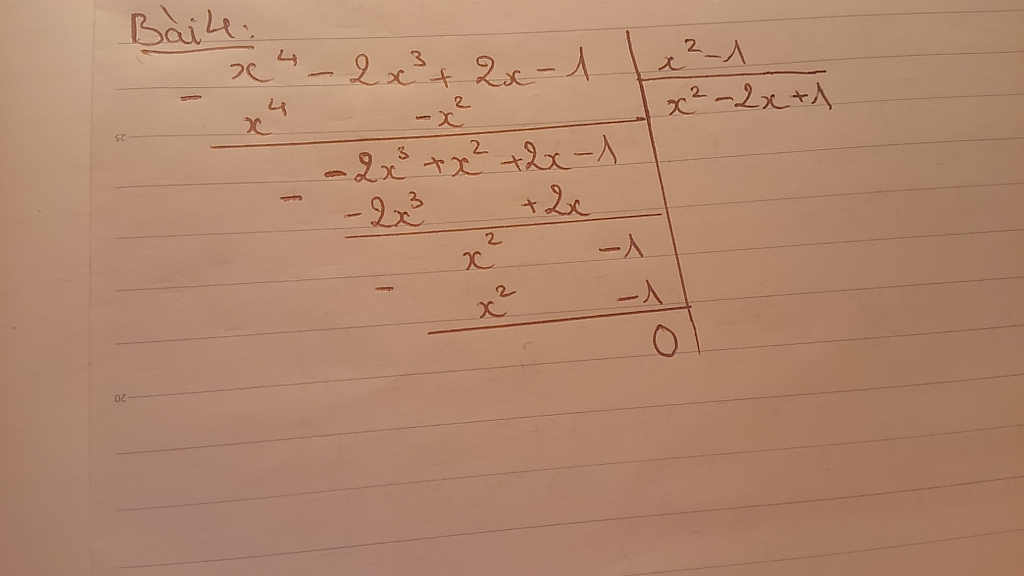 Bài 4:
x⁴ - 2x³ + 2x - 1 | x² - 1
- x⁴ - x² | x² - 2x + 1
25
- 2x³ + x² + 2x - 1
- - 2x³ + 2x
x² - 1
- x² - 1
0
20